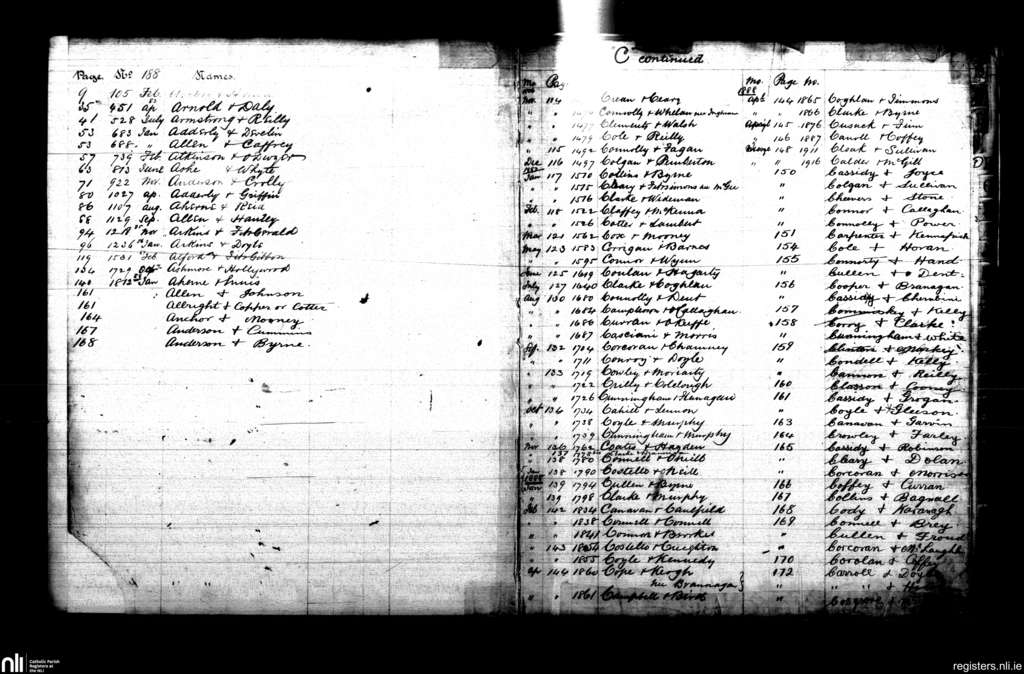 Page. No. 188 Names.
9 105 Feb
35 451 ap Arnold & Daly
41 528 July Armstrong & Reilly
53 683 Jan Adderly & Devlin
53 688 " Allen & Caffrey
57 739 Feb Atkinson & O'Dwyer
63 813 June Ashe & Whyte
71 922 Nov. Anderson & Crolly
80 1027 ap Adderly & Griffin
86 1107 aug. Aherne & Reid
88 1129 Sep. Allen & Hanley
94 1218 Nov Arkins & FitzGerald
96 1236 Jan. Arkins & Doyle
119 1531 Feb Alford & FitzGibbon
134 1729 Oct Ashmore & Hollywood
140 1812 Jan Aherne & Innis
161 Allen & Johnson
161 Allright & Copper or Cotter
164 Anchor & Mooney
167 Anderson & Cummins
168 Anderson & Byrne.
C continued
Mo Pag
Nov. 114 Crean & Geary
" " Connolly & Whelan
" " 1477 Clements & Walsh
" " 1479 Cole & Reilly
" 115 1492 Connolly & Fagan
Dec 116 1497 Colgan & Pemberton
Jan 117 1570 Collins & Byrne
" 1575 Cleary & Fitzsimons née McGee
" 1576 Clarke & Wideman
Feb. 118 1522 Claffey & McKenna
" 1526 Cotter & Lambert
Mar 121 1562 Cox & Mooney
May 123 1583 Corrigan & Barnes
" 1595 Connor & Wynn
June 125 1619 Conlan & Hagarty
July 127 1640 Clarke & Coghlan
Aug 130 1680 Connolly & Dent
" 1684 Campbell & O'Callaghan
" 1686 Curran & O'Keeffe
" 1687 Casciani & Morris
Sep. 132 1704 Corcoran & Chamney
" 1711 Conroy & Doyle
" 133 1719 Cowley & Moriarty
" 1722 Crilly & Colclough
" 1726 Cunningham & Flanagan
Oct 134 1734 Cahill & Lennon
" 1738 Coyle & Murphy
" 1739 Cunningham & Murphy
Nov 136 1762 Coates & Hayden
" 138 1780 Connell & Neill
" 138 1790 Costello & Neill
1888 Jan 139 1794 Cullen & Byrne
" 139 1798 Clarke & Murphy
Feb 142 1834 Canavan & Caulfield
" 1838 Connell & Connell
" 1841 Connor & Brookes
" 143 1854 Costello & Creighton
" 1855 Coyle & Kennedy
ap 144 1860 Cope & Keogh
née Brannagan
" " 1861 Campbell & Bird
Mo. Page No.
1888 apl 144 1865 Coghlan & Simmons
" " 1866 Clarke & Byrne
April 145 1876 Cusack & Finn
146 1887 Carroll & Coffey
148 1911 Cloak & Sullivan
" " 1916 Calder & McGill
150 Cassidy & Joyce
" Colgan & Sullivan
" Cheevers & Stone
" Connor & Callaghan
" Connolly & Power
151 Carpenter & Kennefick
154 Cole & Horan
155 Connorty & Hand
" Cullen & Dent
156 Cooper & Branagan
" Cassidy & Cheroine
157 Comminsky & Kelly
158 Corry & Clarke
" Cunningham & White
159 Clinton &
" Condell & Kelly
" Cannon & Reilly
160 Classon & Cooney
161 Cassidy & Grogan
" Coyle & Gleeson
163 Canavan & Garvin
164 Crowley & Farley
165 Cassidy & Robinson
" Cleary & Dolan
" Corcoran & Morrison
166 Coffey & Curran
167 Collins & Bagnall
168 Cody & Kavanagh
169 Connell & Brey
" Cullen & Froud
" Corcoran & McLaughlin
170 Carolan & Coffey
172 Carroll & Doyle
" " "
" Cosgrove &
nli Catholic Parish Registers at the NLI
registers.nli.ie